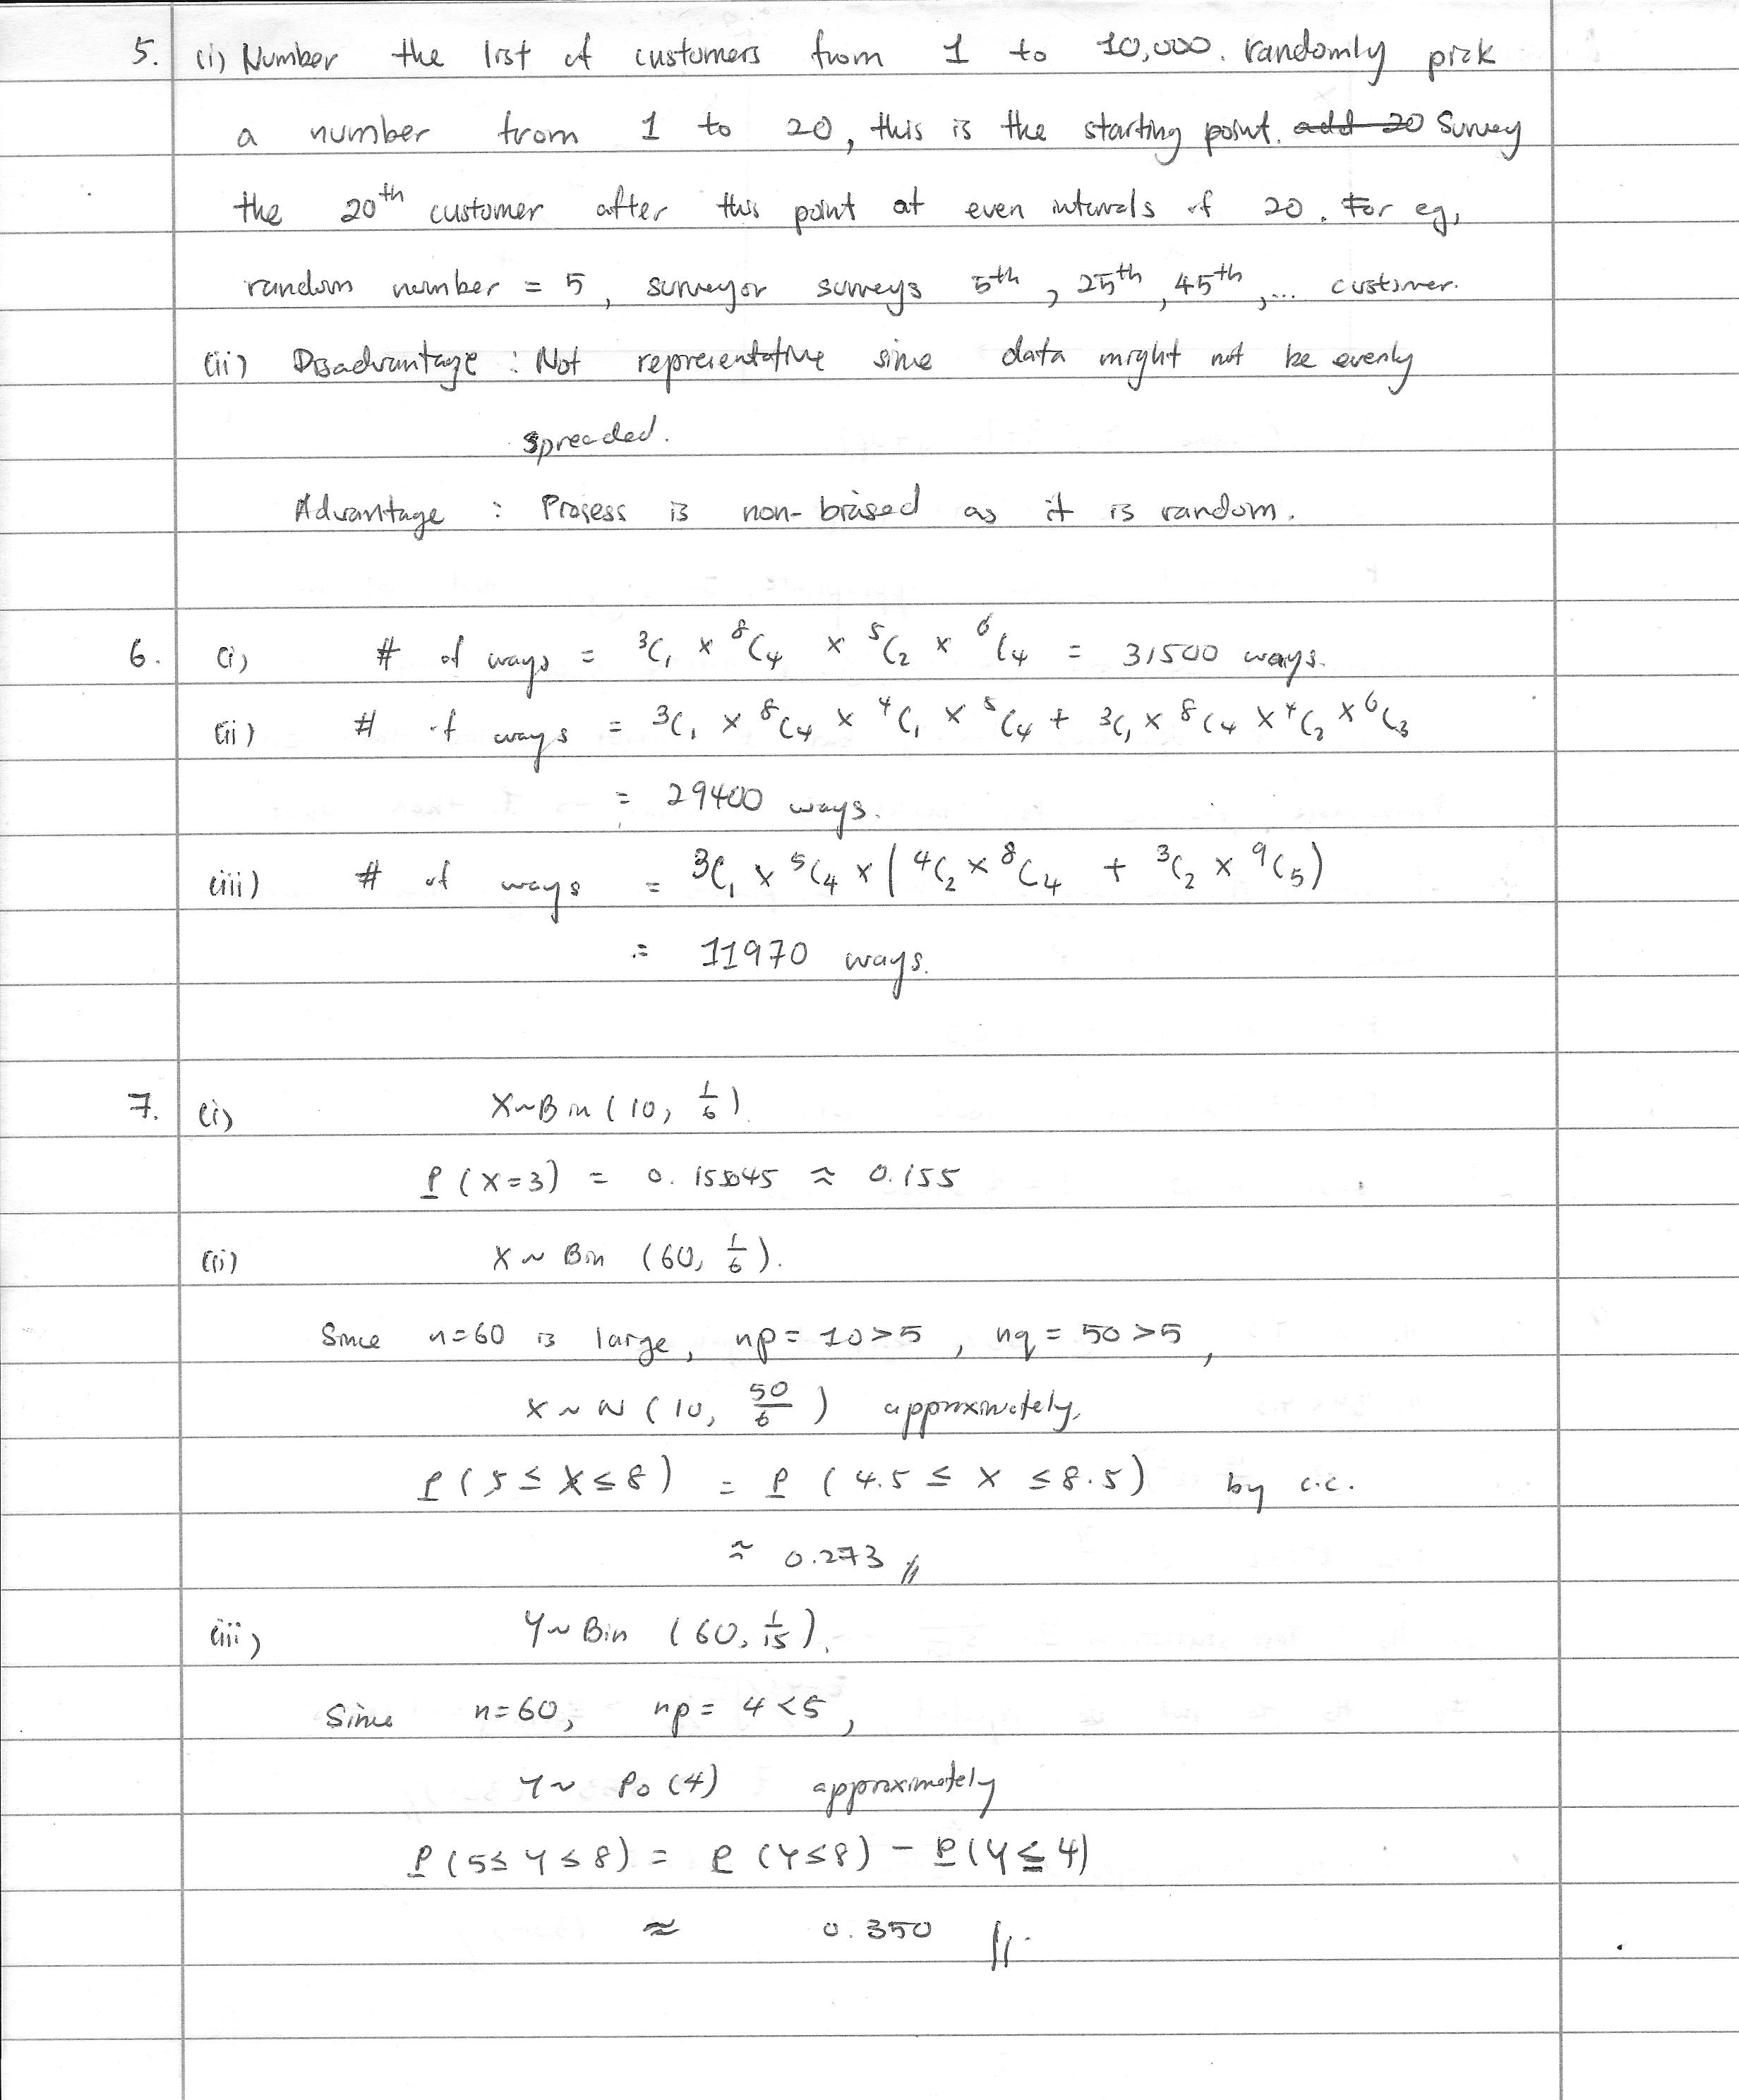 5. (i) Number the list of customers from 1 to 10,000. randomly pick
a number from 1 to 20, this is the starting point. add 20 Survey
the 20th customer after this point at even intervals of 20. For eg,
random number = 5, surveyor surveys 5th, 25th, 45th, ... customer.
(ii) Disadvantage : Not representative since data might not be evenly
spreaded.
Advantage : Prosess is non-biased as it is random.
6. (i) # of ways = ³C₁ × ⁸C₄ × ⁵C₂ × ⁶C₄ = 31500 ways.
(ii) # of ways = ³C₁ × ⁸C₄ × ⁴C₁ × ⁵C₄ + ³C₁ × ⁸C₄ × ⁴C₂ × ⁶C₃
= 29400 ways.
(iii) # of ways = ³C₁ × ⁵C₄ × (⁴C₂ × ⁸C₄ + ³C₂ × ⁹C₅)
= 11970 ways.
7. (i) X~Bin (10, 1/6)
P (X=3) = 0.155045 ≈ 0.155
(ii) X ~ Bin (60, 1/6).
Since n=60 is large, np = 10>5, nq = 50>5,
X ~ N (10, 50/6) approximately.
P (5 ≤ X ≤ 8) = P (4.5 ≤ X ≤ 8.5) by c.c.
≈ 0.273 //
(iii) Y~ Bin (60, 1/15).
Since n=60, np = 4 <5,
Y~ Po (4) approximately
P (5≤ Y ≤ 8) = P (Y≤8) - P(Y≤ 4)
≈ 0.350 //.